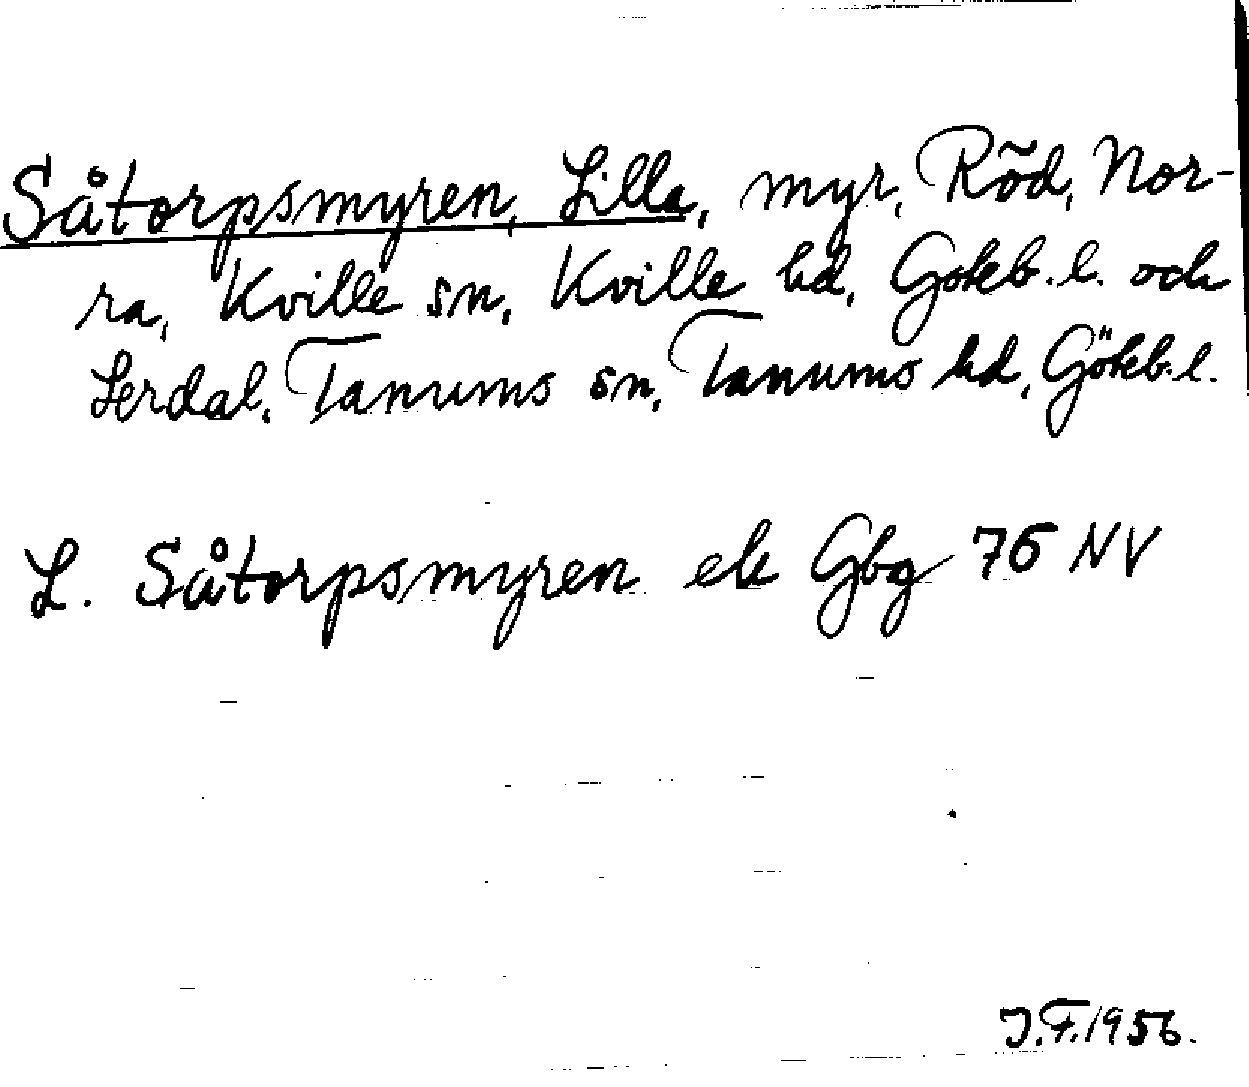 Såtorpsmyren, Lilla, myr, Röd, Nor-
ra, Kville sn, Kville hd, Göteb. l. och
Lerdal, Tanums sn, Tanums hd, Göteb. l.
L. Såtorpsmyren ek Gbg 76 NV
J.F. 1956.